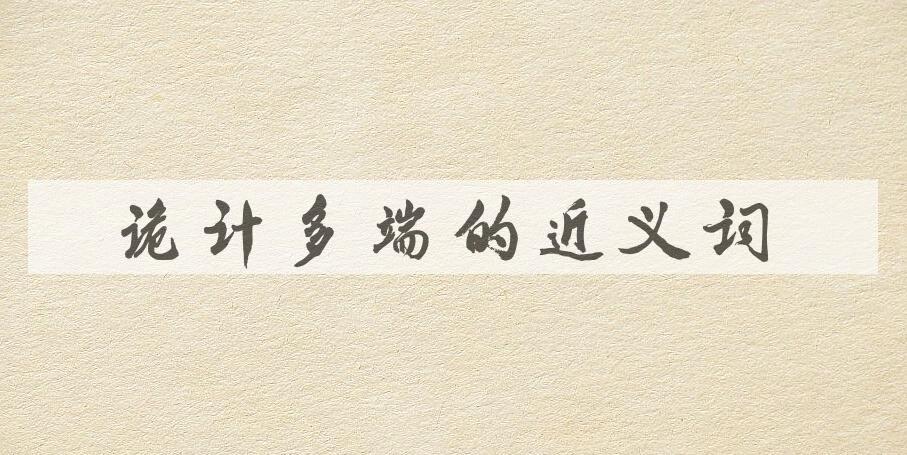 诡计多端的近义词